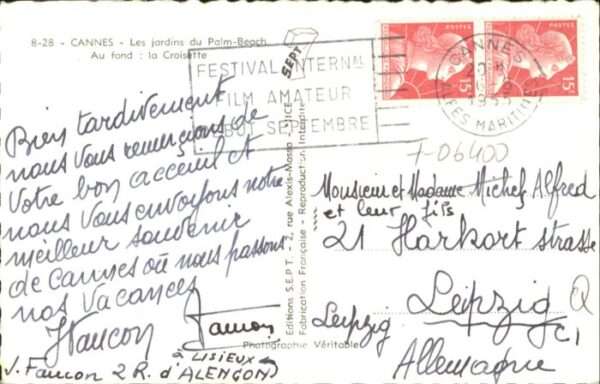 8-28 - CANNES - Les jardins du Palm-Beach
Au fond : la Croisette
FESTIVAL INTERNAL
FILM AMATEUR
DEBUT SEPTEMBRE
SEPT
POSTES
POSTES
15F
15F
CANNES
ALPES MARITIMES
Bien tardivement
nous vous remerçions de
Votre bon acceuil et
nous vous envoyons notre
meilleur souvenir
de Cannes où nous passons
nos Vacances
Faucon
Faucon
à LISIEUX
V. Faucon 2 R. d'ALENÇON
Editions S.E.P.T. - 2, rue Alexis-Mossa - NICE
Fabrication Française - Reproduction Interdite
Photographie Véritable
7-06400
Monsieur et Madame Michel Alfred
et leur fils
21 Harkort strasse
Leipzig
Leipzig
C1
Allemagne